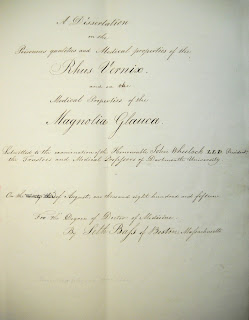 A Dissertation
on the
Poisonous qualities and Medical properties of the
Rhus Vernix.
and on the
Medical Properties of the
Magnolia Glauca.
Submitted to the examination of the Honourable John Wheelock L.L.D. President,
the Trustees and Medical Professors of Dartmouth University
On the of August one thousand eight hundred and fifteen
For the Degree of Doctor of Medicine.
By of Boston, Massachusetts